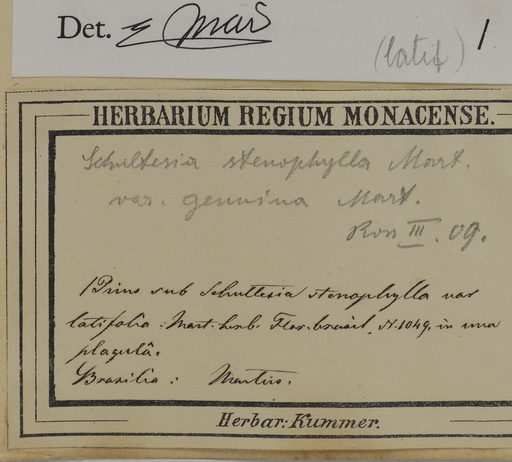 Det. E Mai
(latif) /
HERBARIUM REGIUM MONACENSE.
Schultesia stenophylla Mart.
var. genuina Mart.
Ross III. 09.
Prius sub Schultesia stenophylla var
latifolia: Mart. herb. Flor. brasil. N. 1049. in una
plagulâ.
Brasilia: Martius.
Herbar: Kummer.